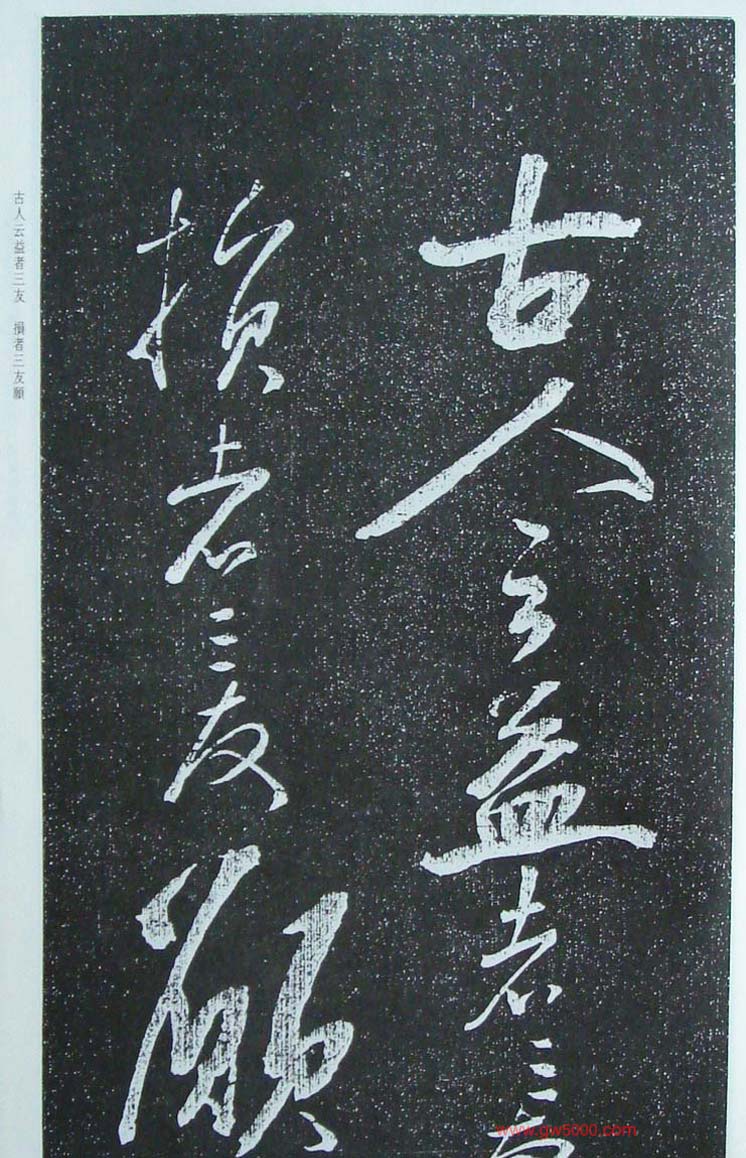 古人云益者三友
損者三友願
古人云益者三友 損者三友願
www.gw5000.com